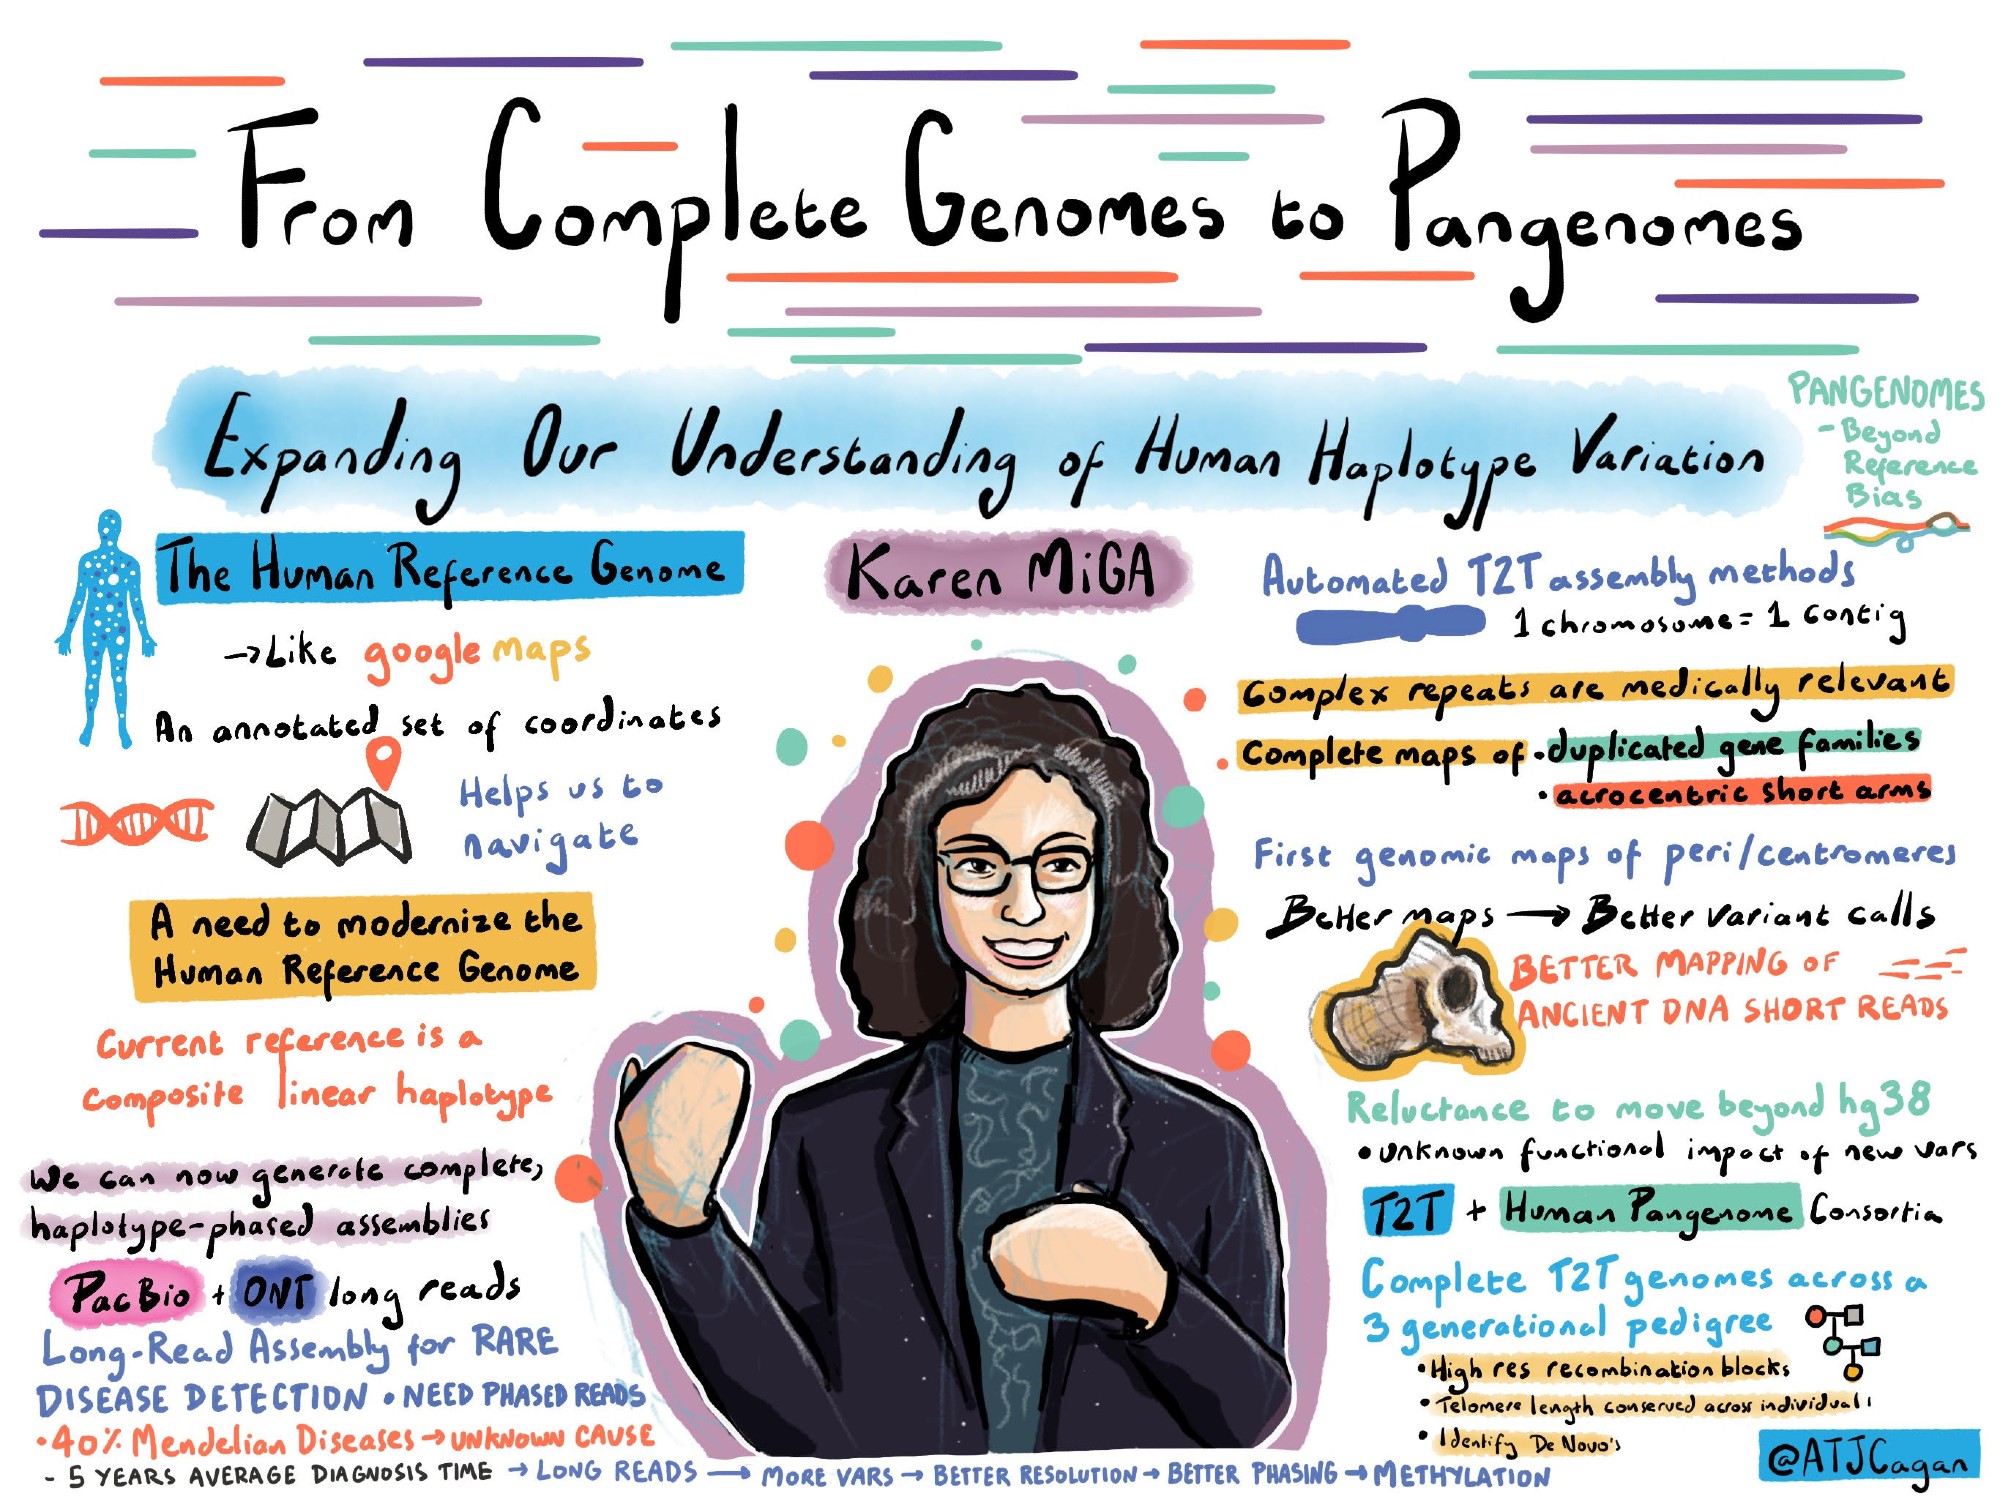 From Complete Genomes to Pangenomes
Expanding Our Understanding of Human Haplotype Variation
PANGENOMES
- Beyond
Reference
Bias
The Human Reference Genome
→Like google maps
An annotated set of coordinates
Helps us to
navigate
A need to modernize the
Human Reference Genome
Current reference is a
composite linear haplotype
We can now generate complete,
haplotype-phased assemblies
PacBio + ONT long reads
Long-Read Assembly for RARE
DISEASE DETECTION • NEED PHASED READS
•40% Mendelian Diseases → UNKNOWN CAUSE
- 5 YEARS AVERAGE DIAGNOSIS TIME → LONG READS → MORE VARS → BETTER RESOLUTION → BETTER PHASING → METHYLATION
Karen MiGA
Automated T2T assembly methods
1 chromosome = 1 contig
Complex repeats are medically relevant
Complete maps of • duplicated gene families
• acrocentric short arms
First genomic maps of peri/centromeres
Better maps → Better variant calls
BETTER MAPPING OF
ANCIENT DNA SHORT READS
Reluctance to move beyond hg38
• unknown functional impact of new vars
T2T + Human Pangenome Consortia
Complete T2T genomes across a
3 generational pedigree
• High res recombination blocks
• Telomere length conserved across individuals
• Identify De Novo's
@ATJCagan